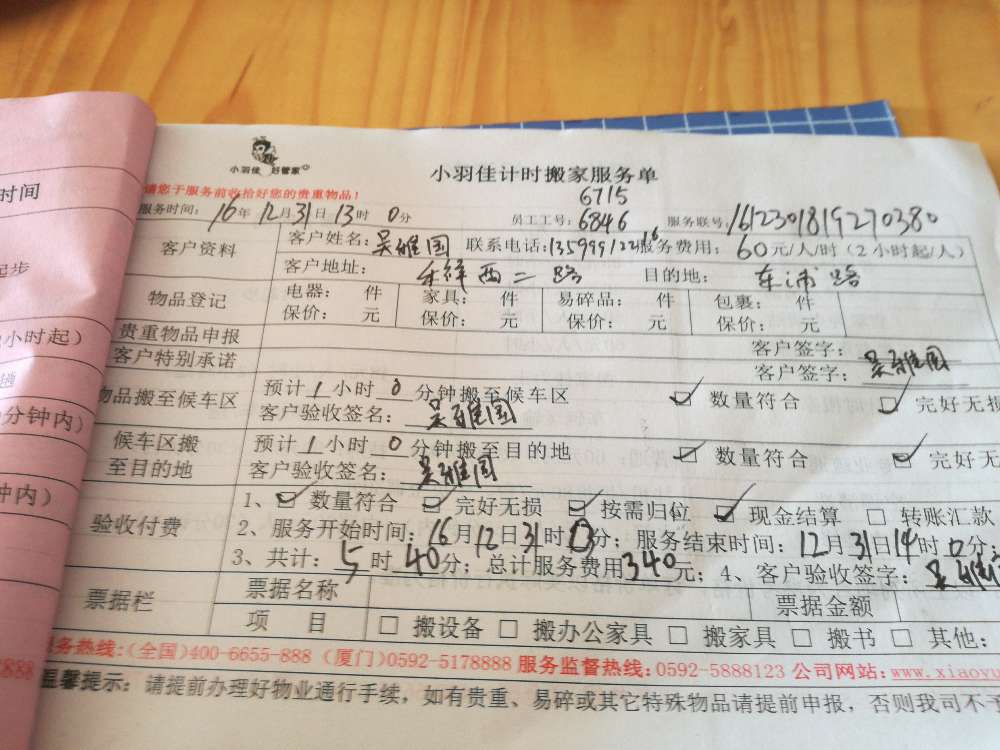 时间
起步
小时起）
分钟内）
钟内）
小羽佳 好管家
小羽佳计时搬家服务单
请您于服务前收拾好您的贵重物品！
6715
服务时间：16年12月31日13时0分 员工工号：6846 服务联号：1612301819270380
客户资料 客户姓名：吴雅国 联系电话：13599912216 服务费用：60元/人/时（2小时起/人）
客户地址：乐祥西二路 目的地：东浦路
物品登记 电器： 件 家具： 件 易碎品： 件 包裹： 件
保价： 元 保价： 元 保价： 元 保价： 元
贵重物品申报 客户签字：
客户特别承诺 客户签字：吴雅国
物品搬至候车区 预计1小时0分钟搬至候车区 ☑ 数量符合 ☑ 完好无损
客户验收签名：吴雅国
候车区搬至目的地 预计1小时0分钟搬至目的地 ☑ 数量符合 ☑ 完好无
客户验收签名：吴雅国
验收付费 1、☑ 数量符合 ☑ 完好无损 ☑ 按需归位 ☑ 现金结算 □ 转账汇款
2、服务开始时间：16月12日31时13分；服务结束时间：12月31日14时0分；
3、共计：5时40分；总计服务费用340元；4、客户验收签字：吴雅
票据栏 票据名称 票据金额
项 目 □ 搬设备 □ 搬办公家具 □ 搬家具 □ 搬书 □ 其他：
8888 服务热线:(全国)400-6655-888 (厦门)0592-5178888 服务监督热线:0592-5888123 公司网站:www.xiaoyu
温馨提示：请提前办理好物业通行手续，如有贵重、易碎或其它特殊物品请提前申报，否则我司不予